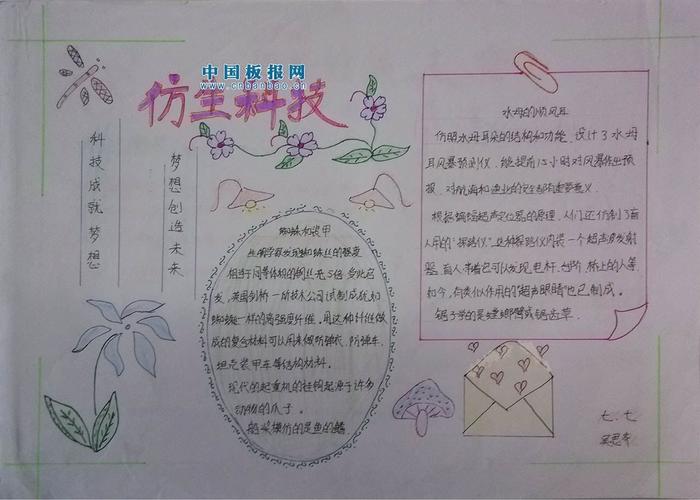 中国板报网
www.cnbanbao.cn
仿生科技
科技成就梦想
梦想创造未来
蜘蛛和装甲
生物学家发现蜘蛛丝的强度
相当于同等体积的钢丝的5倍.受此启
发,英国剑桥一所技术公司试制成犹如
蜘蛛丝一样的高强度纤维.用这种纤维做
成的复合材料可以用来做防弹衣、防弹车、
坦克装甲车等结构材料.
现代的起重机的挂钩起源于许多
动物的爪子。
船桨模仿的是鱼的鳍
水母的顺风耳
仿照水母耳朵的结构和功能,设计了水母
耳风暴预测仪,能提前15小时对风暴作出预
报,对航海和渔业的安全都有重要意义.
根据蝙蝠超声定位器的原理,人们还仿制了盲
人用的"探路仪".这种探路仪内装一个超声波发射
器,盲人带着它可以发现电杆、台阶、桥上的人等.
如今,有类似作用的"超声眼睛"也已制成。
锯子学的是螳螂臂或锯齿草.
七.七